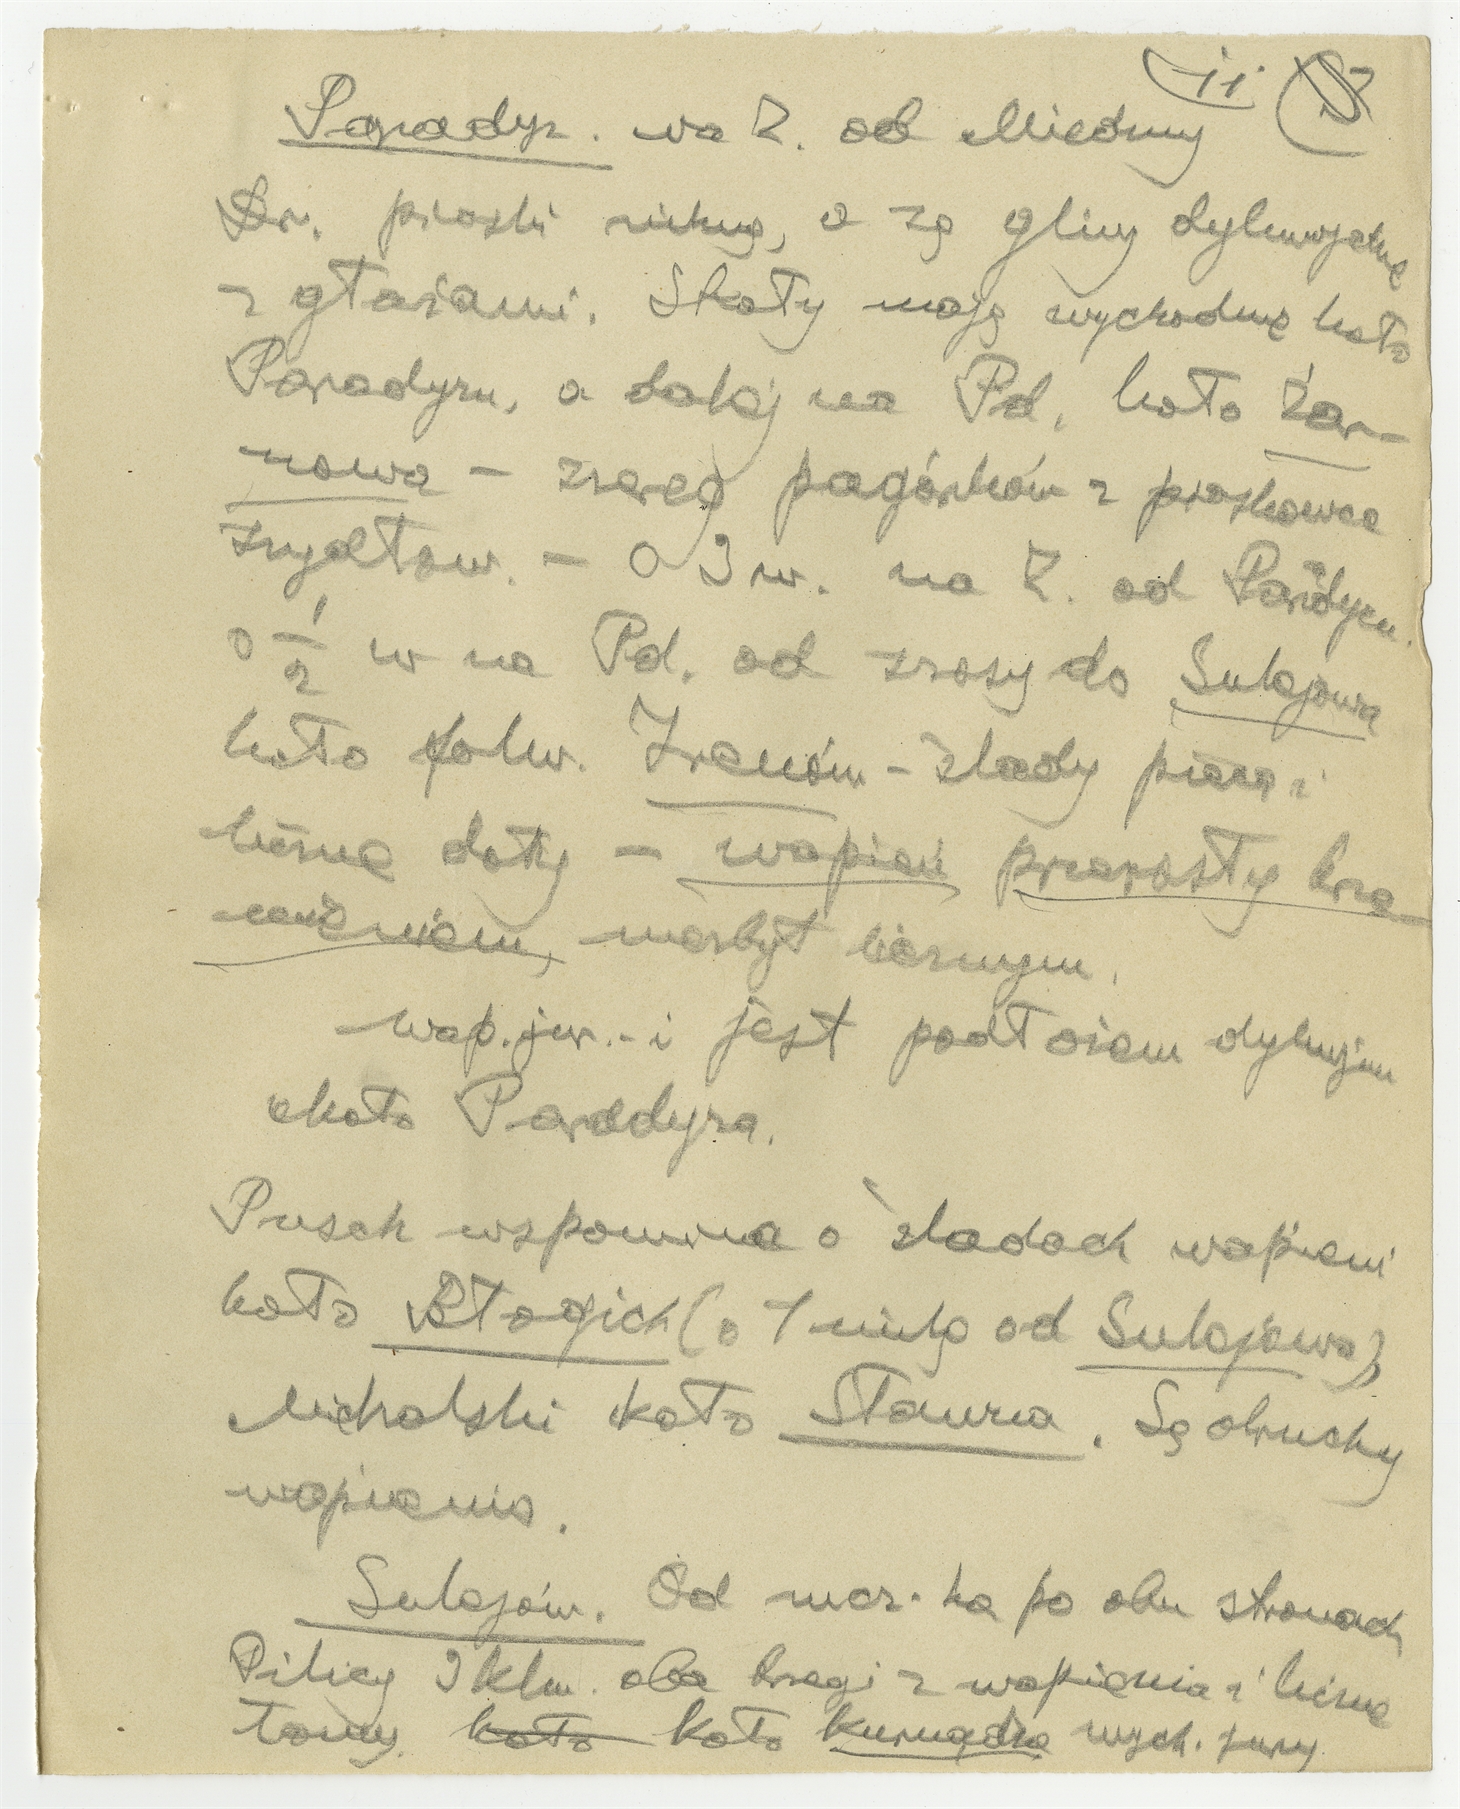 11
Paradyz. na Z. od Miedzny
Dr. piaski nikną, a są gliny dyluwjalne
z głazami. Skały mają wychodnię koło
Paradyzu, a dalej na Pd. koło Żar-
nowa – szereg pagórków z piaskowca
szydłow. – O 3 w. na Z. od Paradyzu.
o 1/2 w na Pd. od szosy do Sulejowa
koło folw. Irenów – ślady pieca i
liczne doły – wapień przerosły krze-
mieniem, niezbyt licznym.
wap. jur. – i jest podłożem dyluwjum
koło Paradyza.
Pusch wspomina o śladach wapieni
koło Błogich (o 1 milę od Sulejowa)
Michalski koło Stawna. Są okruchy
wapienia.
Sulejów. Od mcz-ka po obu stronach
Pilicy 3 klm. oba brzegi z wapienia i liczne
łomy. koło koło Kurnędza wych. jury